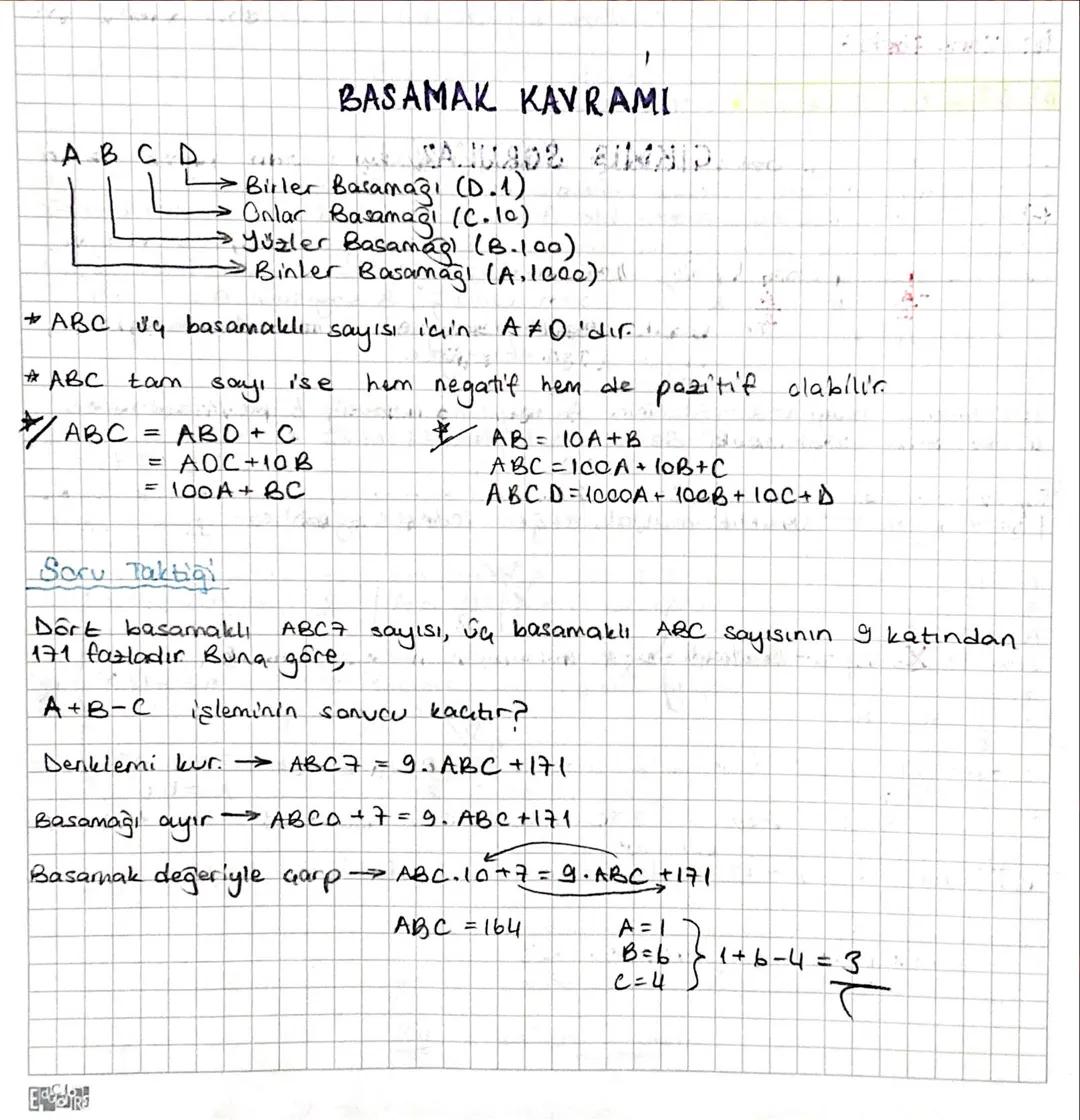 BASAMAK KAVRAMI
A B C D
Birler Basamağı (D.1)
Onlar Basamağı (C.10)
Yüzler Basamağı (B.100)
Binler Basamağı (A.1000)
* ABC üç basamaklı sayısı için A ≠ 0 'dır.
* ABC tam sayı ise hem negatif hem de pozitif olabilir.
* ABC = AB0 + C
= A0C + 10B
= 100A + BC
* AB = 10A + B
ABC = 100A + 10B + C
ABCD = 1000A + 100B + 10C + D
Soru Taktiği
Dört basamaklı ABC7 sayısı, üç basamaklı ABC sayısının 9 katından
171 fazladır. Buna göre,
A + B - C işleminin sonucu kaçtır?
Denklemi kur. → ABC7 = 9. ABC + 171
Basamağı ayır → ABC0 + 7 = 9. ABC + 171
Basamak değeriyle çarp → ABC.10 + 7 = 9. ABC + 171
ABC = 164
A = 1
B = 6
C = 4
1 + 6 - 4 = 3